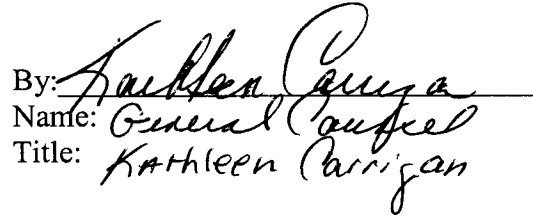 By: Kathleen Carrigan
Name: General Counsel
Title: Kathleen Carrigan